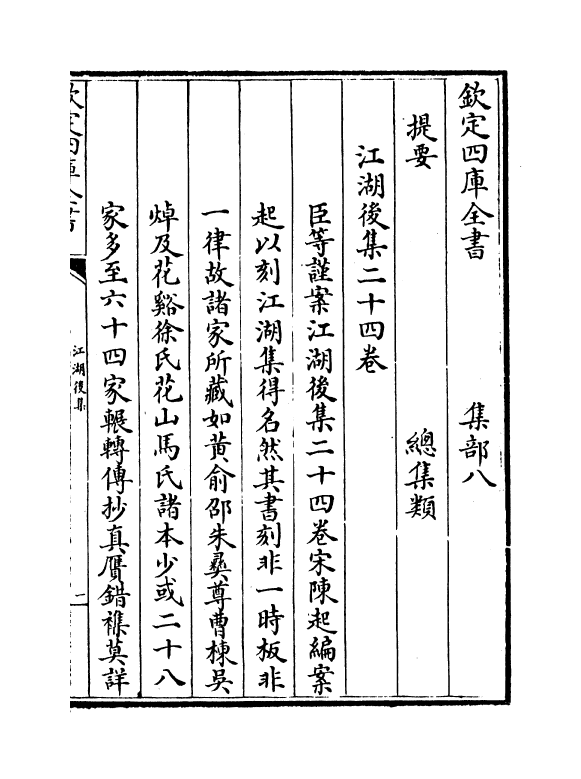 欽定四庫全書　集部八
提要　總集類
江湖後集二十四卷
臣等謹案江湖後集二十四卷宋陳起編案
起以刻江湖集得名然其書刻非一時板非
一律故諸家所藏如黄俞邵朱彝尊曹棟吴
焯及花谿徐氏花山馬氏諸本少或二十八
家多至六十四家輾轉傳抄真贋錯襍莫詳
欽定四庫全書
江湖後集